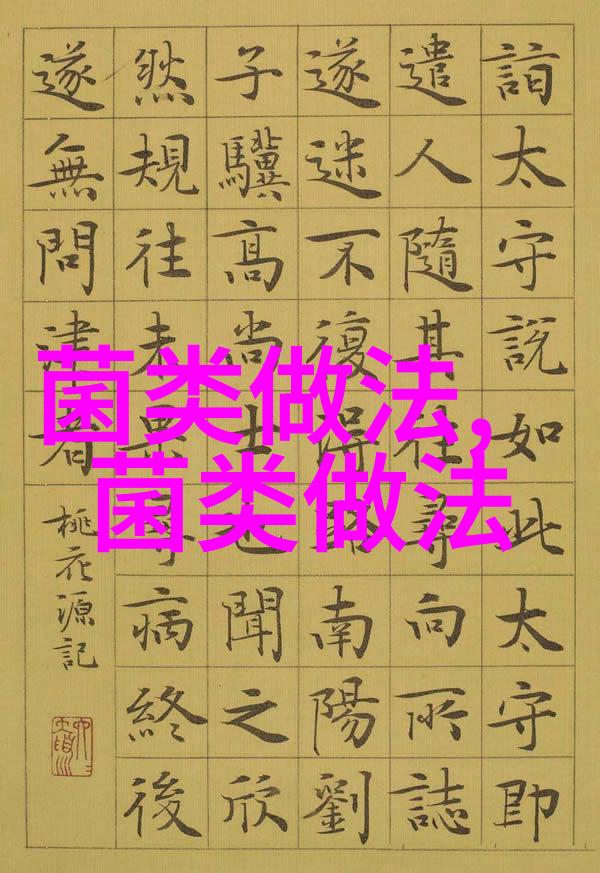 詣太守說如此太守即
遣人隨其往尋向所誌
遂迷不復得路南陽劉
子驥高尚士也聞之欣
然規往未果尋病終後
遂無問津者
桃花源記
菌类做法,
菌类做法